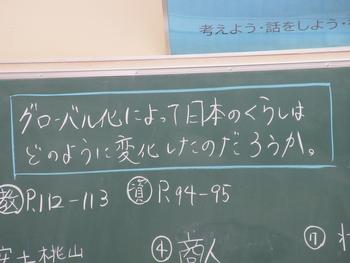 考えよう・話をしよう・
グローバル化によって日本のくらしは
どのように変化したのだろうか。
教 P.112-113 資 P.94-95
安土桃山 ④ 商人 ⑦